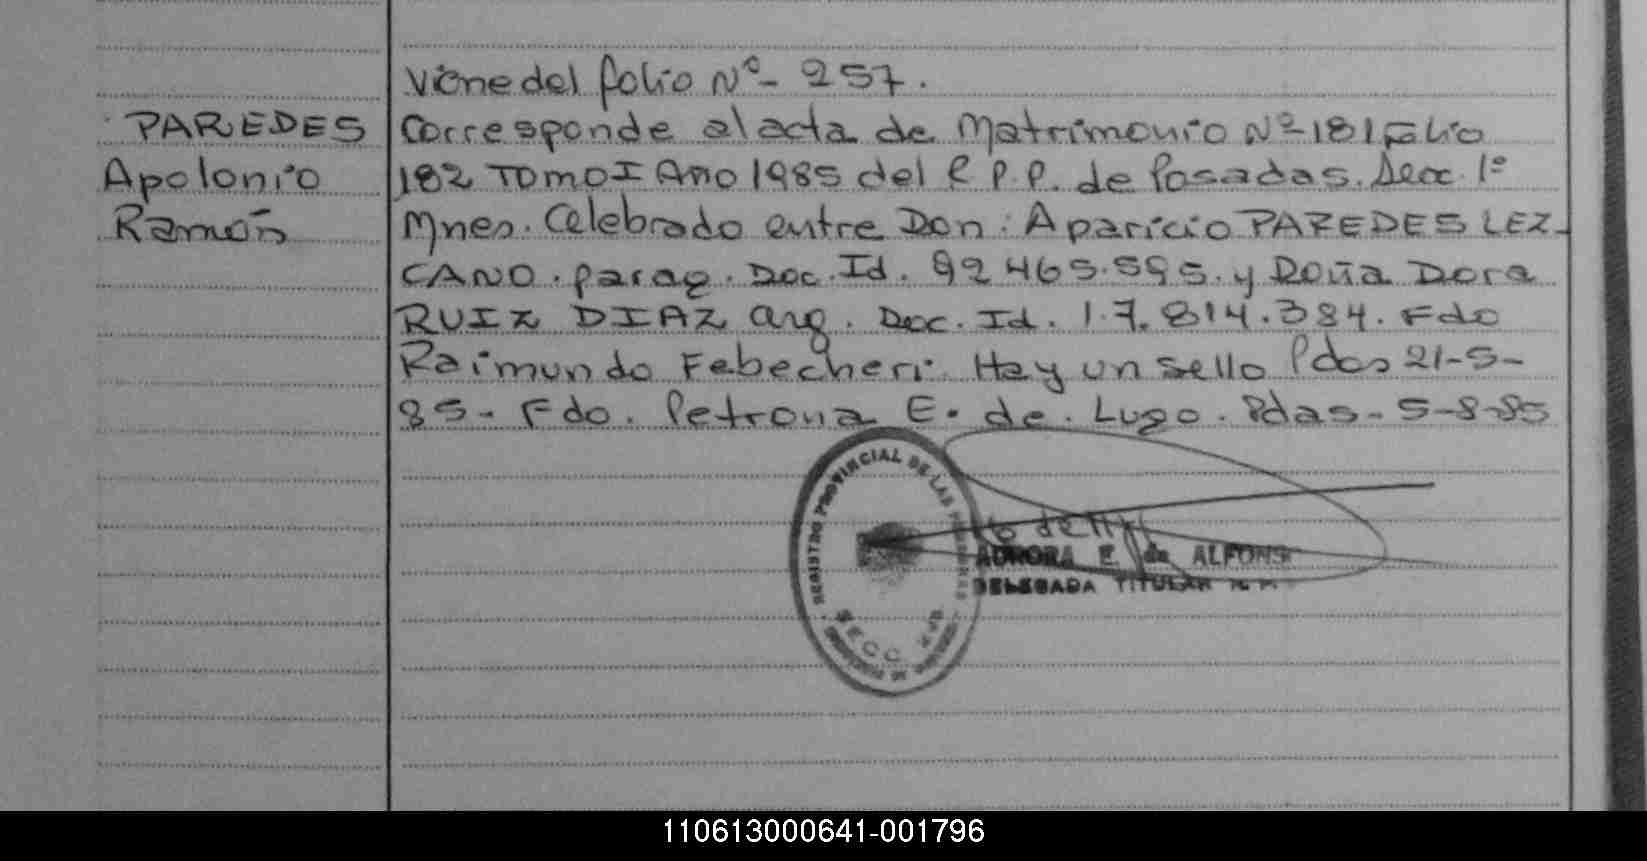 Viene del folio Nº- 257.
PAREDES
Apolonio
Ramón
Corresponde al acta de Matrimonio Nº-181 Folio
182 Tomo I Año 1985 del R.P.P. de Posadas. Secc. 1º
Mnes. Celebrado entre Don: Aparicio PAREDES LEZ-
CANO. parag. Doc. Id. 92 465.595. y Doña Dora
RUIZ DIAZ arg. Doc. Id. 17.814.384. Fdo
Raimundo Febecheri. Hay un sello Pdas 21-5-
85- Fdo. Petrona E. de Lugo. Pdas- 5-8-85
REGISTRO PROVINCIAL DE LAS PERSONAS
SECC
AURORA E. de ALFONS
DELEGADA TITULAR R. P.
110613000641-001796